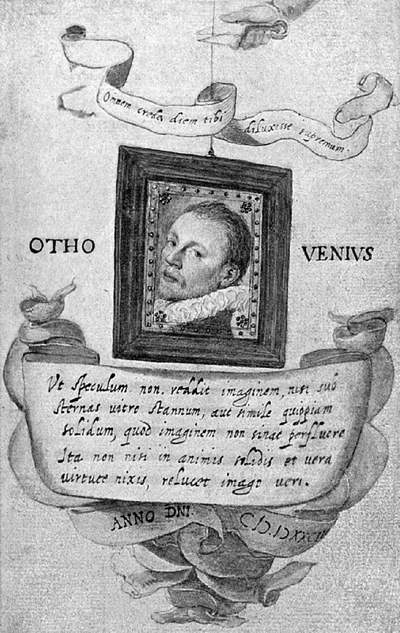 Omnem crede diem tibi diluxisse supremum.
OTHO VENIVS
Vt speculum non reddit imaginem, nisi sub
sternas vitro stannum, aut simile quippiam
solidum, quod imaginem non sinat perfluere
Ita non nisi in animis solidis et vera
virtute nixis, relucet imago veri.
ANNO DNI.